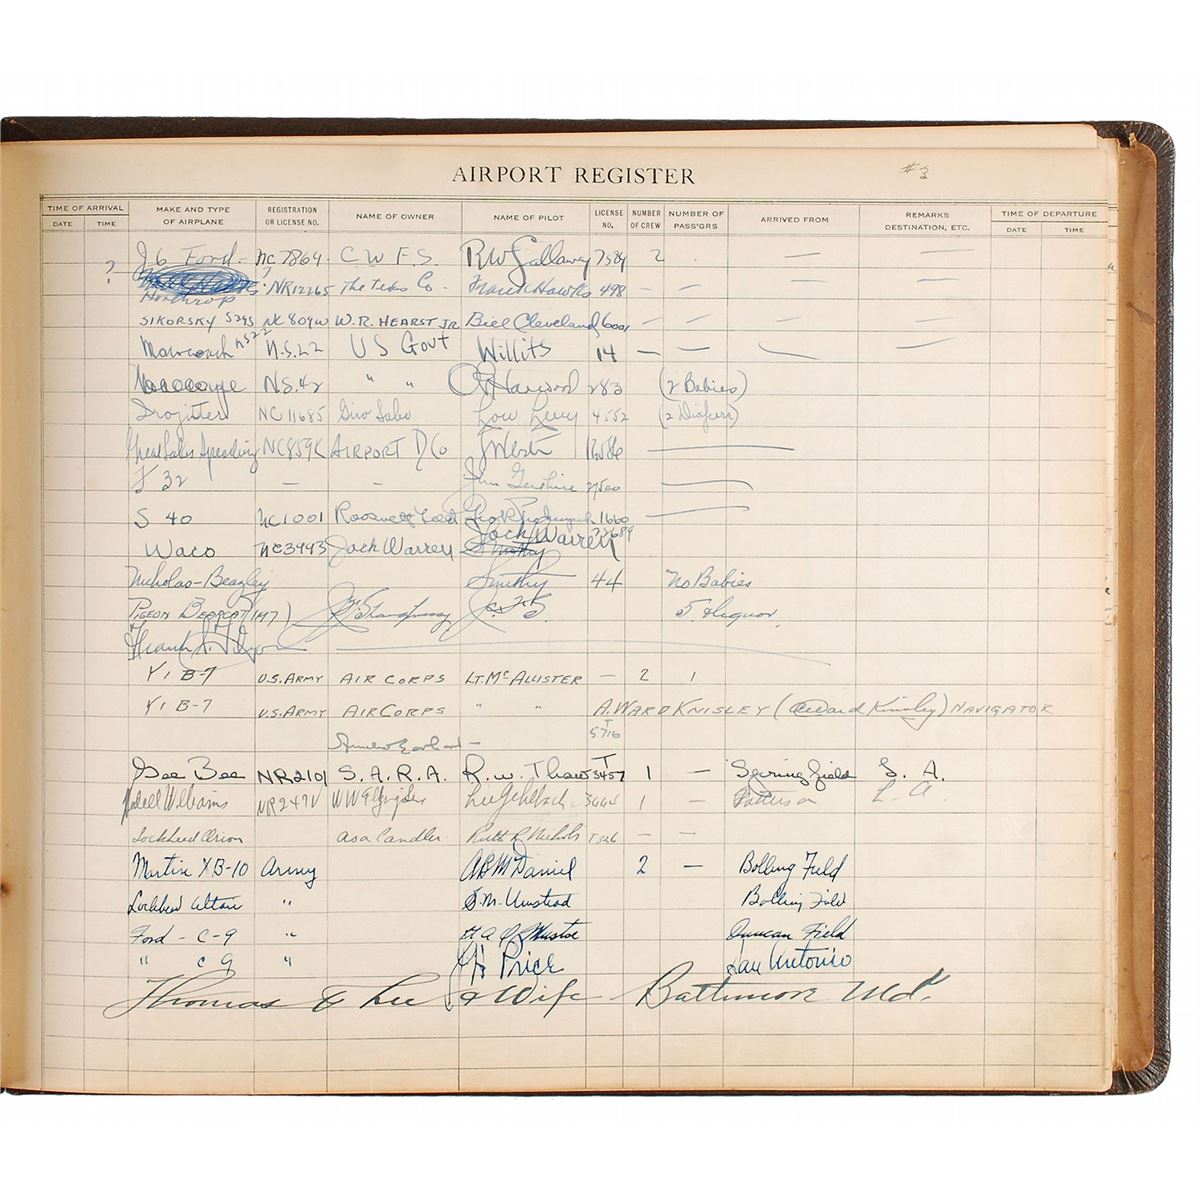 AIRPORT REGISTER #3
TIME OF ARRIVAL MAKE AND TYPE OF AIRPLANE REGISTRATION OR LICENSE NO. NAME OF OWNER NAME OF PILOT LICENSE NO. NUMBER OF CREW NUMBER OF PASS'GRS ARRIVED FROM REMARKS DESTINATION, ETC. TIME OF DEPARTURE
DATE TIME DATE TIME
J6 Ford - NC7864 - C W F S. RW Gallaway 7584 2 — —
? ? NR12265 The Texas Co - Frank Hawks 498 — — — —
Northrop
SIKORSKY S39S NC809W W. R. HEARST JR Bill Cleveland 6001 — — — —
N.S.22 US Govt Willits 14 — — — —
NS.42 " " Harwood 283 (2 Babies)
NC11685 Lou Levy 4552 (2 Diapers)
NC859K AIRPORT D/Co J West 13586
F 32 — — John 2500
S 40 NC1001 Roosevelt Field 1660
Waco NC3993 Jack Warren Jack Warren 23689
Nicholas-Beazley Smithy 44 No Babies
PIGEON BEARCAT (147) 5. Liquor.
Y1 B-7 U.S. ARMY AIR CORPS LT. McALLISTER — 2 1
Y1 B-7 U.S. ARMY AIR CORPS " " A. WARD KNISLEY (Award Knisley) NAVIGATOR
Amelia Earhart — T 5716
Gee Bee NR2101 S. A. R. A. R. W. Thaw T 5457 1 — Springfield L. A.
Wedell Williams NR247V Lee Gehlbach 3664 1 — Patterson L A
Lockheed Orion Asa Candler Ruth R Nichols T326 — —
Martin XB-10 Army AB McDaniel 2 — Bolling Field
Lockheed Altair " S. M. Umstead Bolling Field
Ford - C-9 " Duncan Field
" C 9 " Price San Antonio
Thomas & Lee & Wife Baltimore Md.